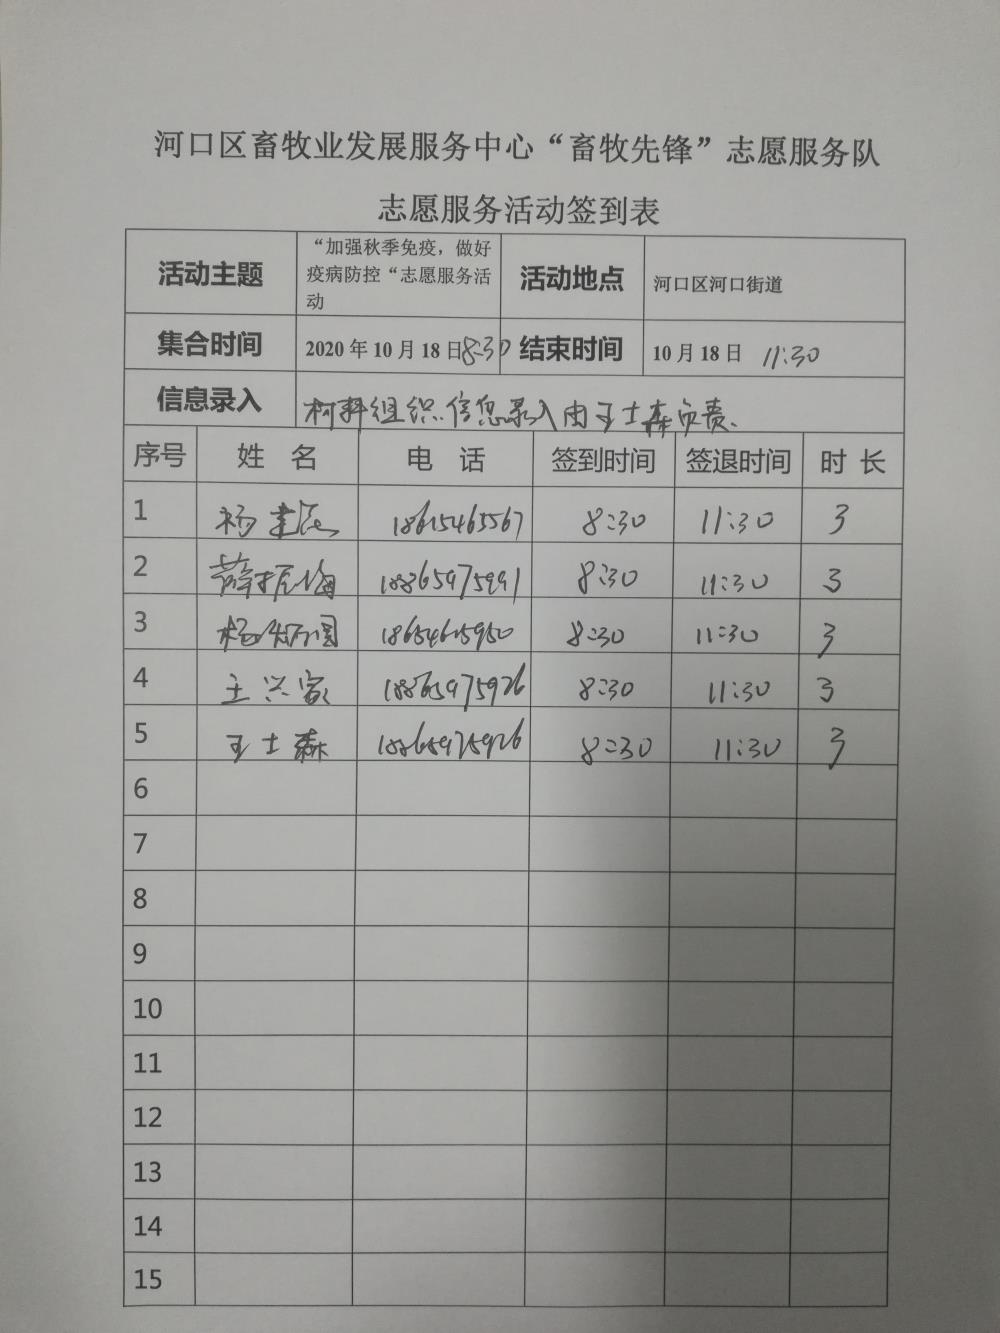 河口区畜牧业发展服务中心“畜牧先锋”志愿服务队
志愿服务活动签到表
活动主题 “加强秋季免疫，做好疫病防控“志愿服务活动 活动地点 河口区河口街道
集合时间 2020年10月18日8:30 结束时间 10月18日 11:30
信息录入 材料组织信息录入由王士森负责.
序号 姓 名 电 话 签到时间 签退时间 时 长
1 杨 18615465567 8:30 11:30 3
2 薛振海 18865975991 8:30 11:30 3
3 杨 18654615950 8:30 11:30 3
4 王兴家 18865975926 8:30 11:30 3
5 王士森 18865975926 8:30 11:30 3
6
7
8
9
10
11
12
13
14
15